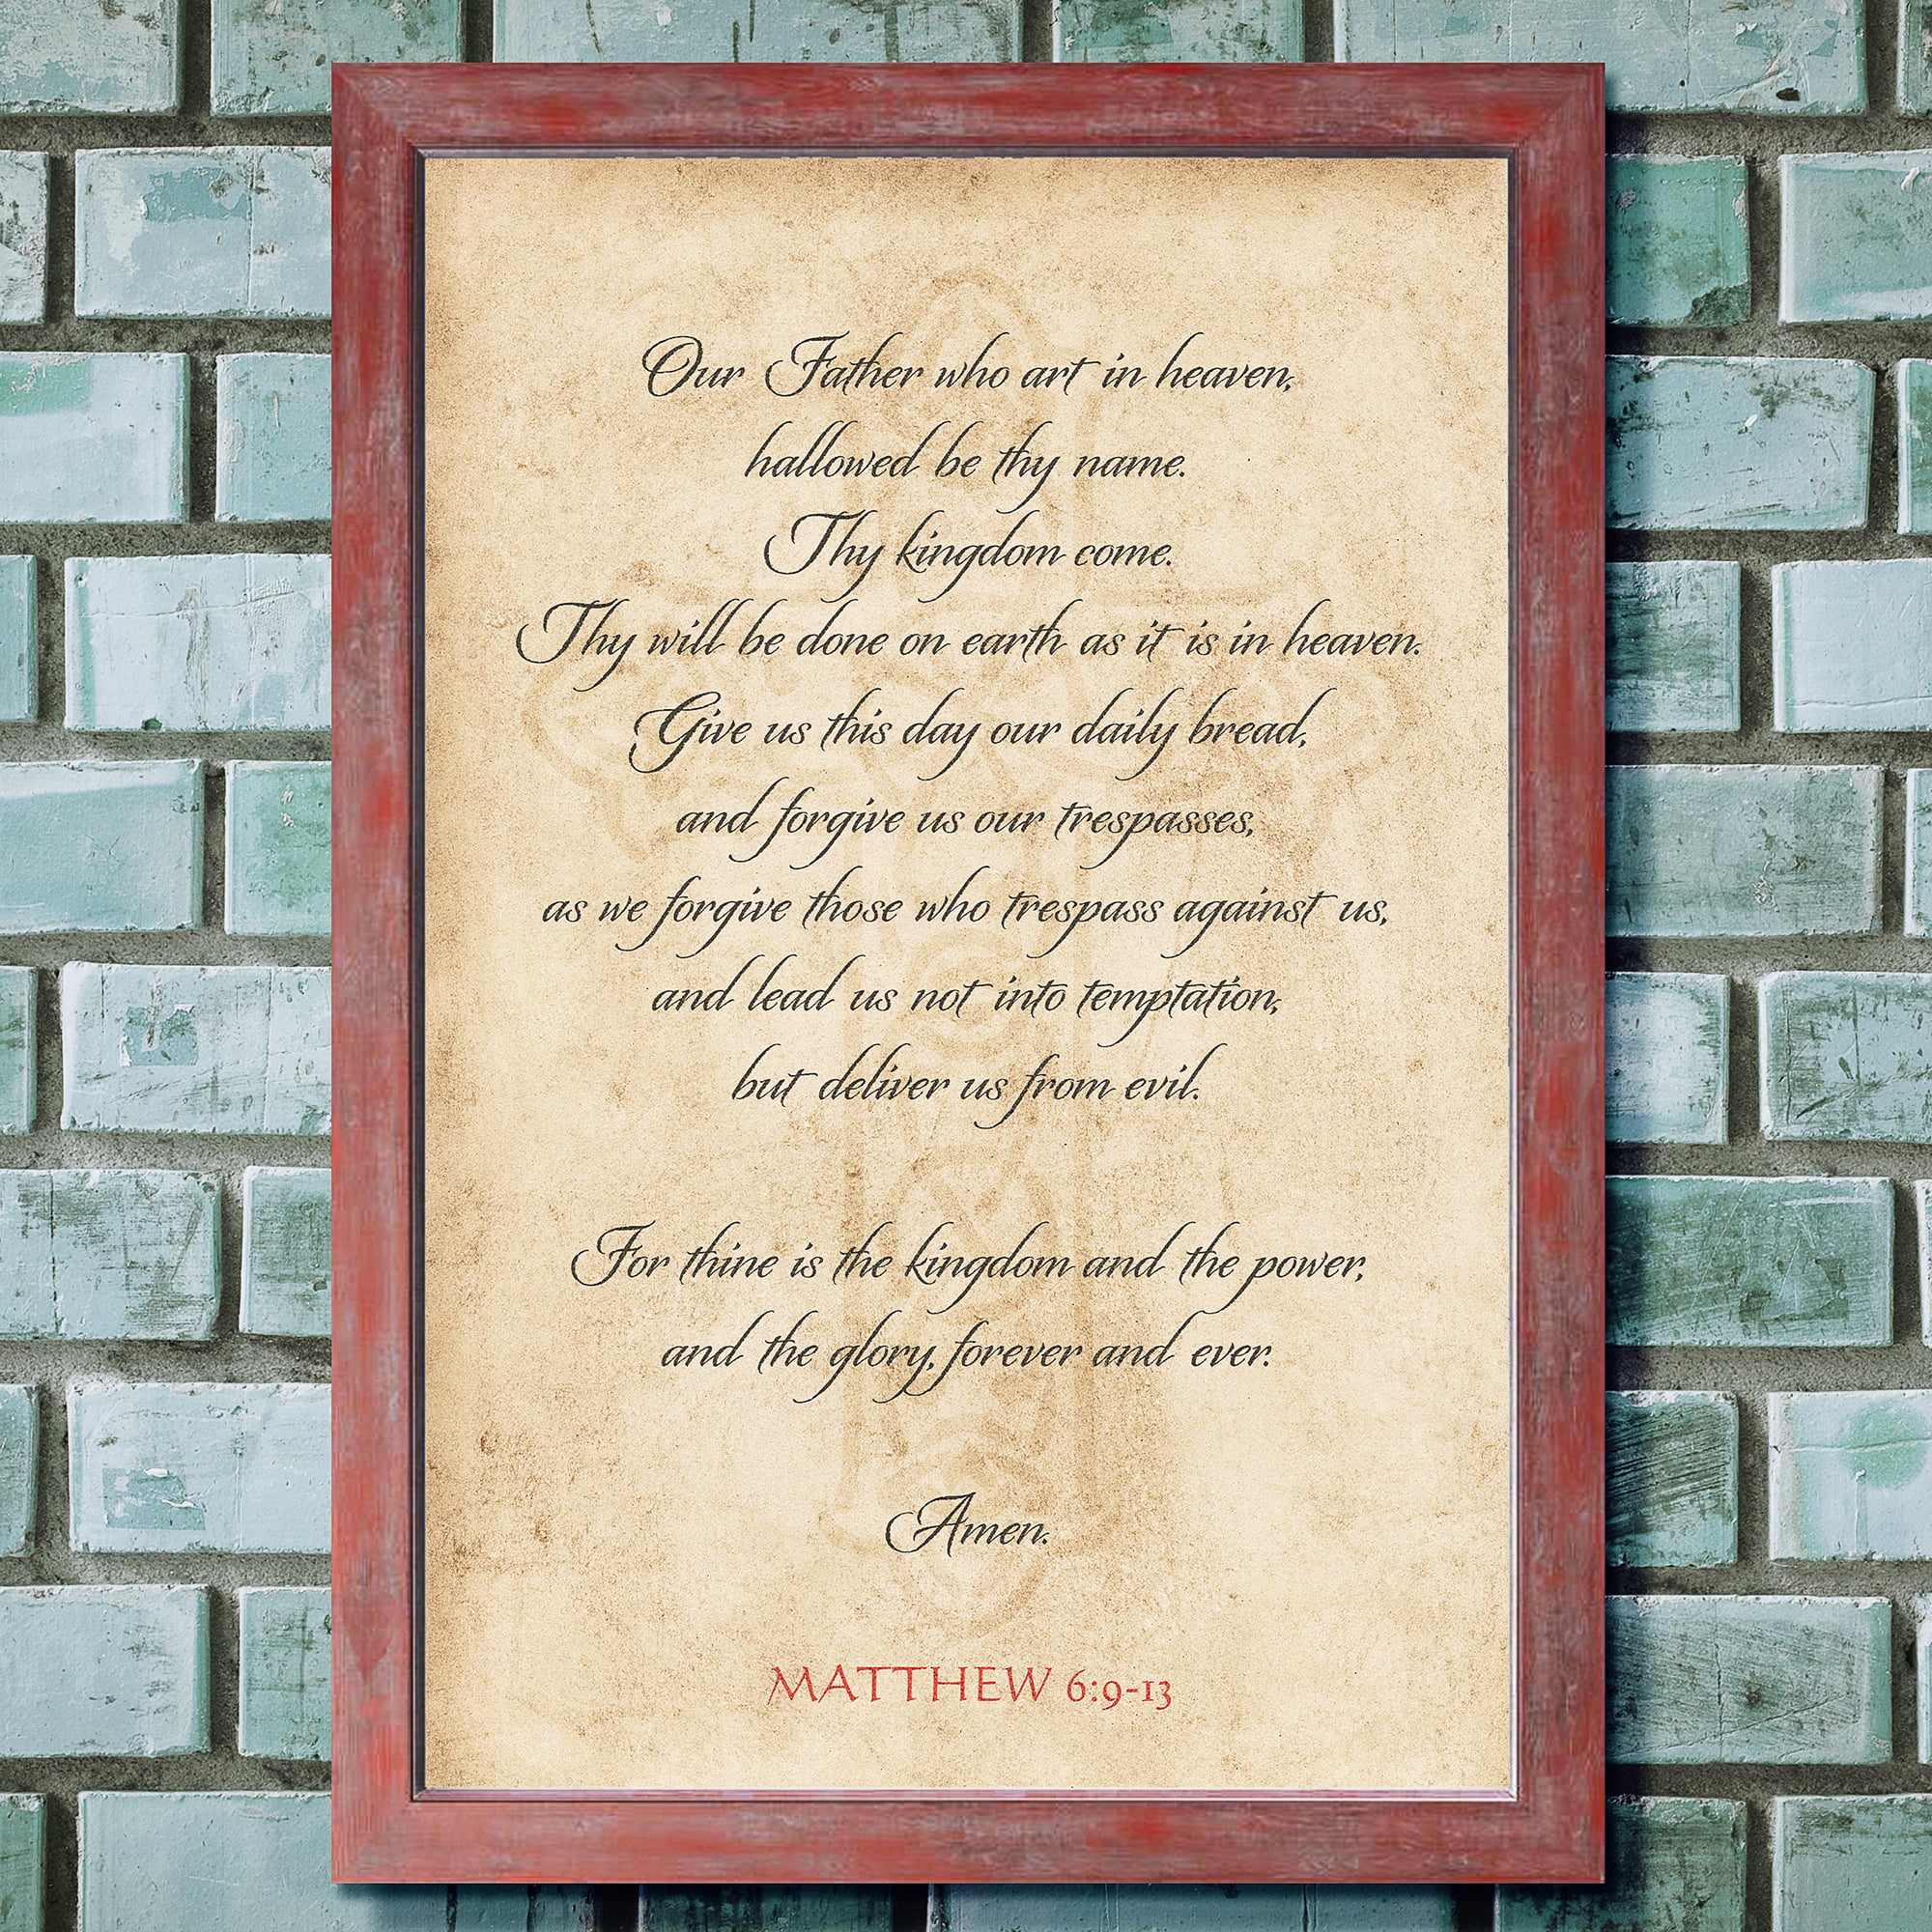 Our Father who art in heaven,
hallowed be thy name.
Thy kingdom come.
Thy will be done on earth as it is in heaven.
Give us this day our daily bread,
and forgive us our trespasses,
as we forgive those who trespass against us,
and lead us not into temptation,
but deliver us from evil.
For thine is the kingdom and the power,
and the glory, forever and ever.
Amen.
MATTHEW 6:9-13